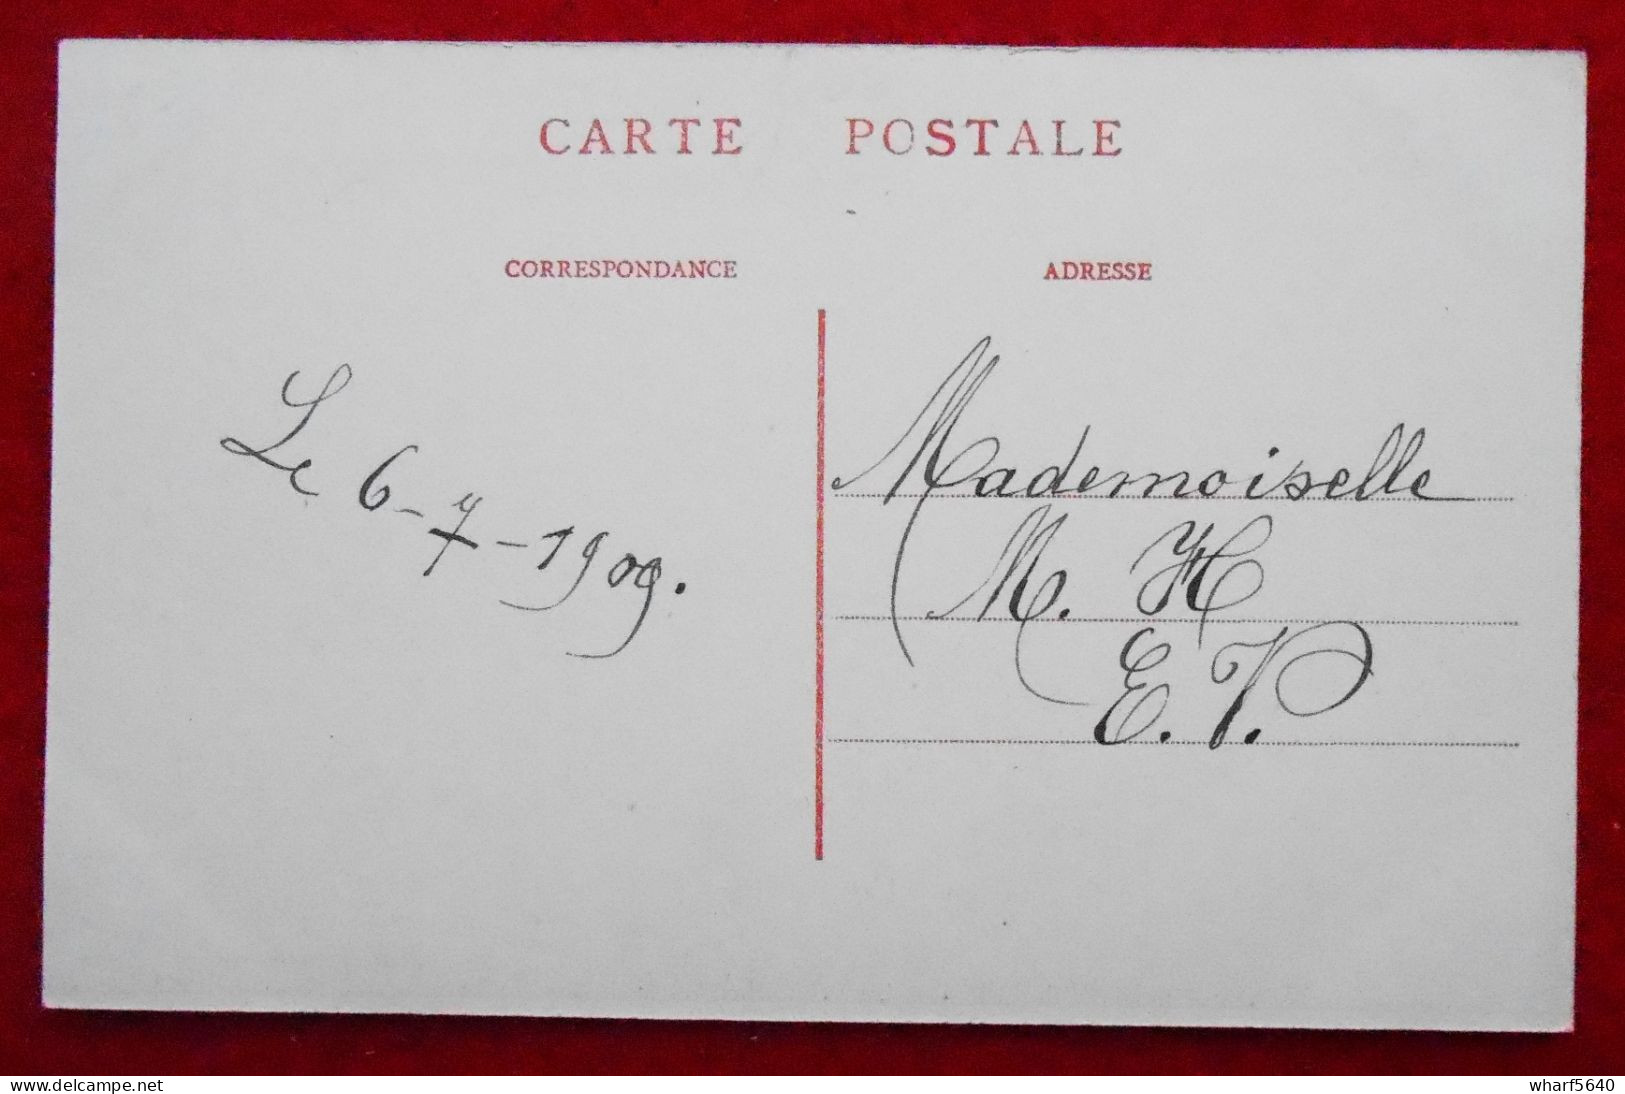 CARTE POSTALE
CORRESPONDANCE
ADRESSE
Le 6-7-1909.
Mademoiselle
M. H
E. V.
delcampe.net
wharf5640